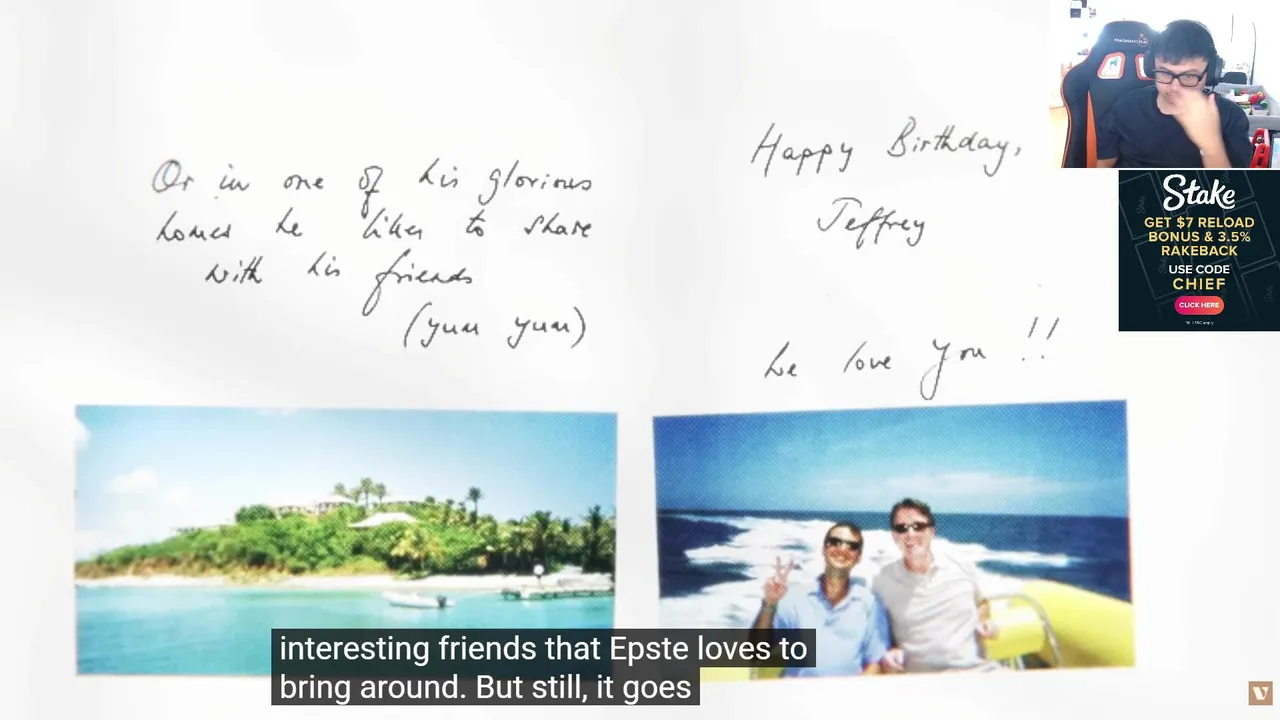 Or in one of his glorious
homes he likes to share
with his friends
(yum yum)
Happy Birthday,
Jeffrey
We love you !!
Stake
GET $7 RELOAD
BONUS & 3.5%
RAKEBACK
USE CODE
CHIEF
CLICK HERE
interesting friends that Epste loves to
bring around. But still, it goes